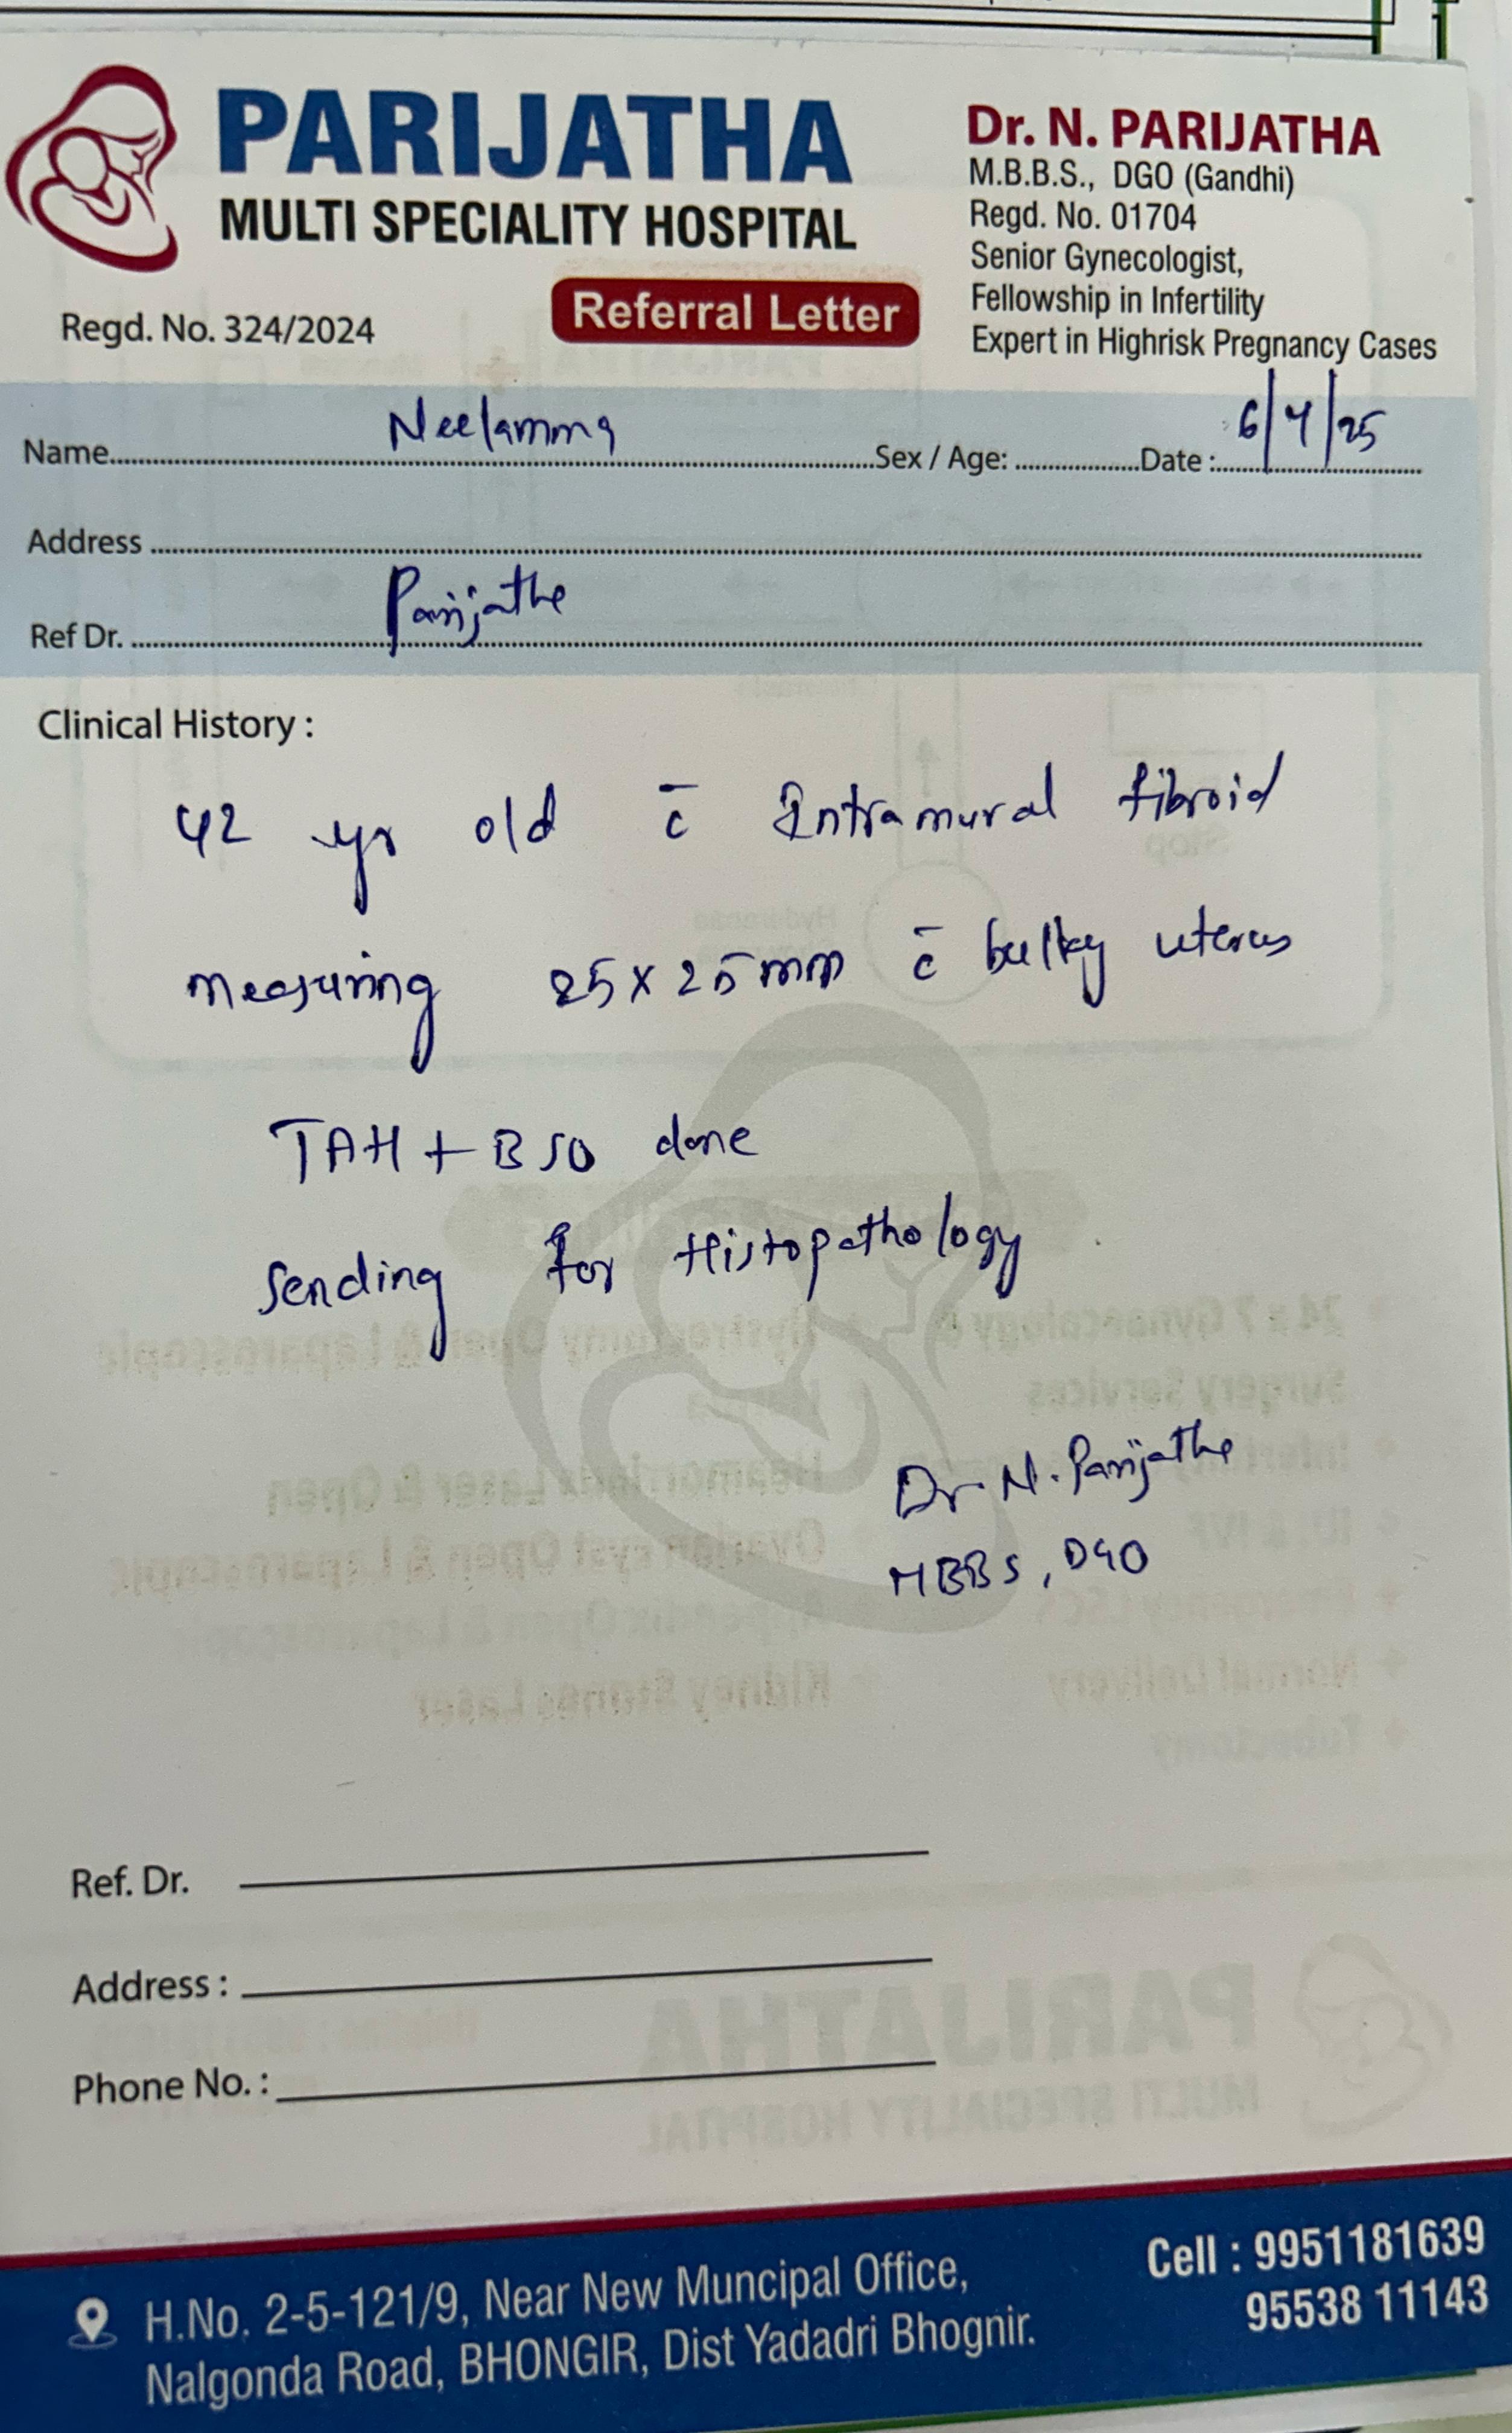 PARIJATHA
MULTI SPECIALITY HOSPITAL
Regd. No. 324/2024
Referral Letter
Dr. N. PARIJATHA
M.B.B.S., DGO (Gandhi)
Regd. No. 01704
Senior Gynecologist,
Fellowship in Infertility
Expert in Highrisk Pregnancy Cases
Name Neelamma Sex / Age: Date : 6/4/25
Address
Ref Dr. Parijatha
Clinical History :
42 yr old c̄ Intramural fibroid
measuring 25x25mm c̄ bulky uterus
TAH + BSO done
Sending for Histopathology
Dr. N. Parijatha
MBBS, DGO
Ref. Dr.
Address :
Phone No. :
H.No. 2-5-121/9, Near New Muncipal Office,
Nalgonda Road, BHONGIR, Dist Yadadri Bhognir.
Cell : 9951181639
95538 11143